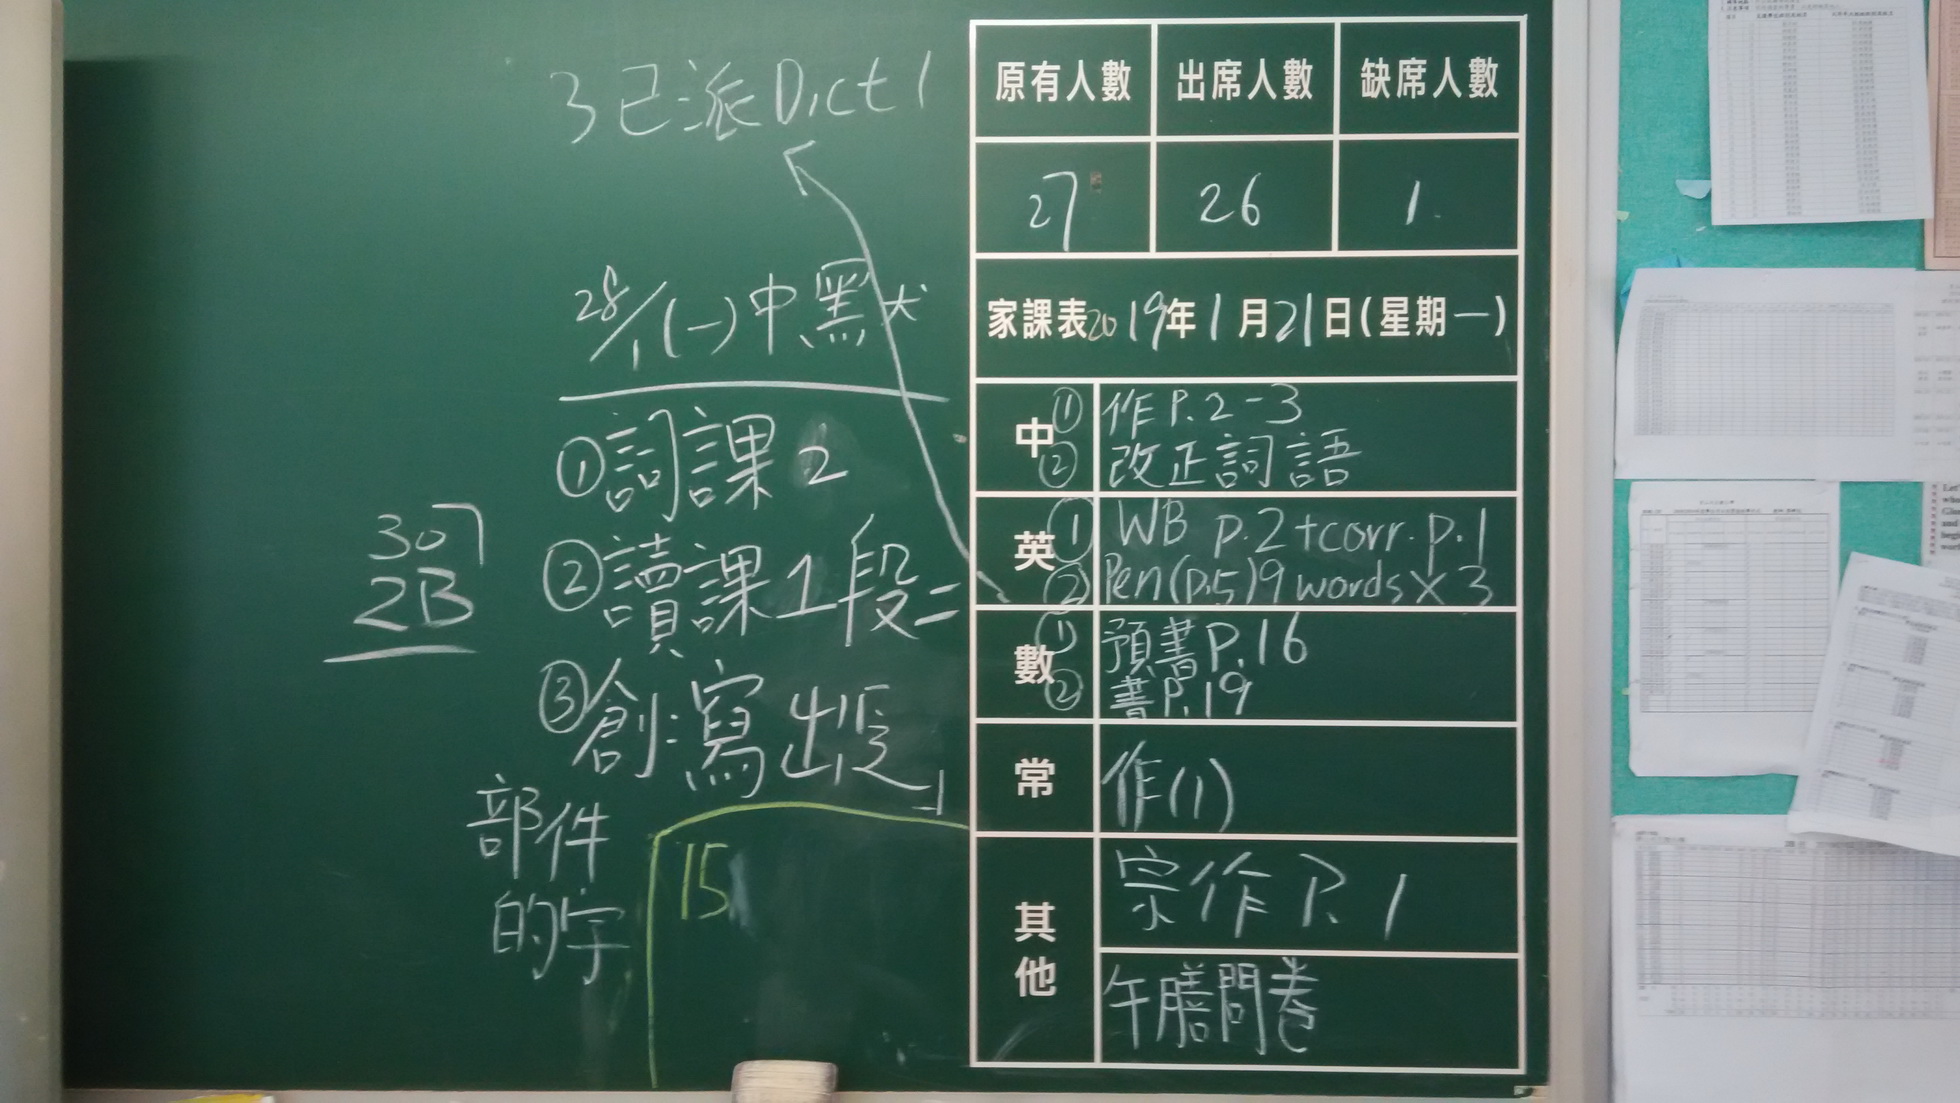 3 已派 Dict 1
28/1 (一) 中黑犬
① 詞課2
② 讀課1段=
③ 創:寫出
部件
的字
307
2B
15
原有人數 出席人數 缺席人數
27 26 1
家課表2019年1月21日(星期一)
中 ① 作P.2-3
② 改正詞語
英 ① WB p.2+corr. p.1
② Pen(p.5)9 words X 3
數 ① 預書P.16
② 書P.19
常 作(1)
其他 宗作 P.1
午膳問卷